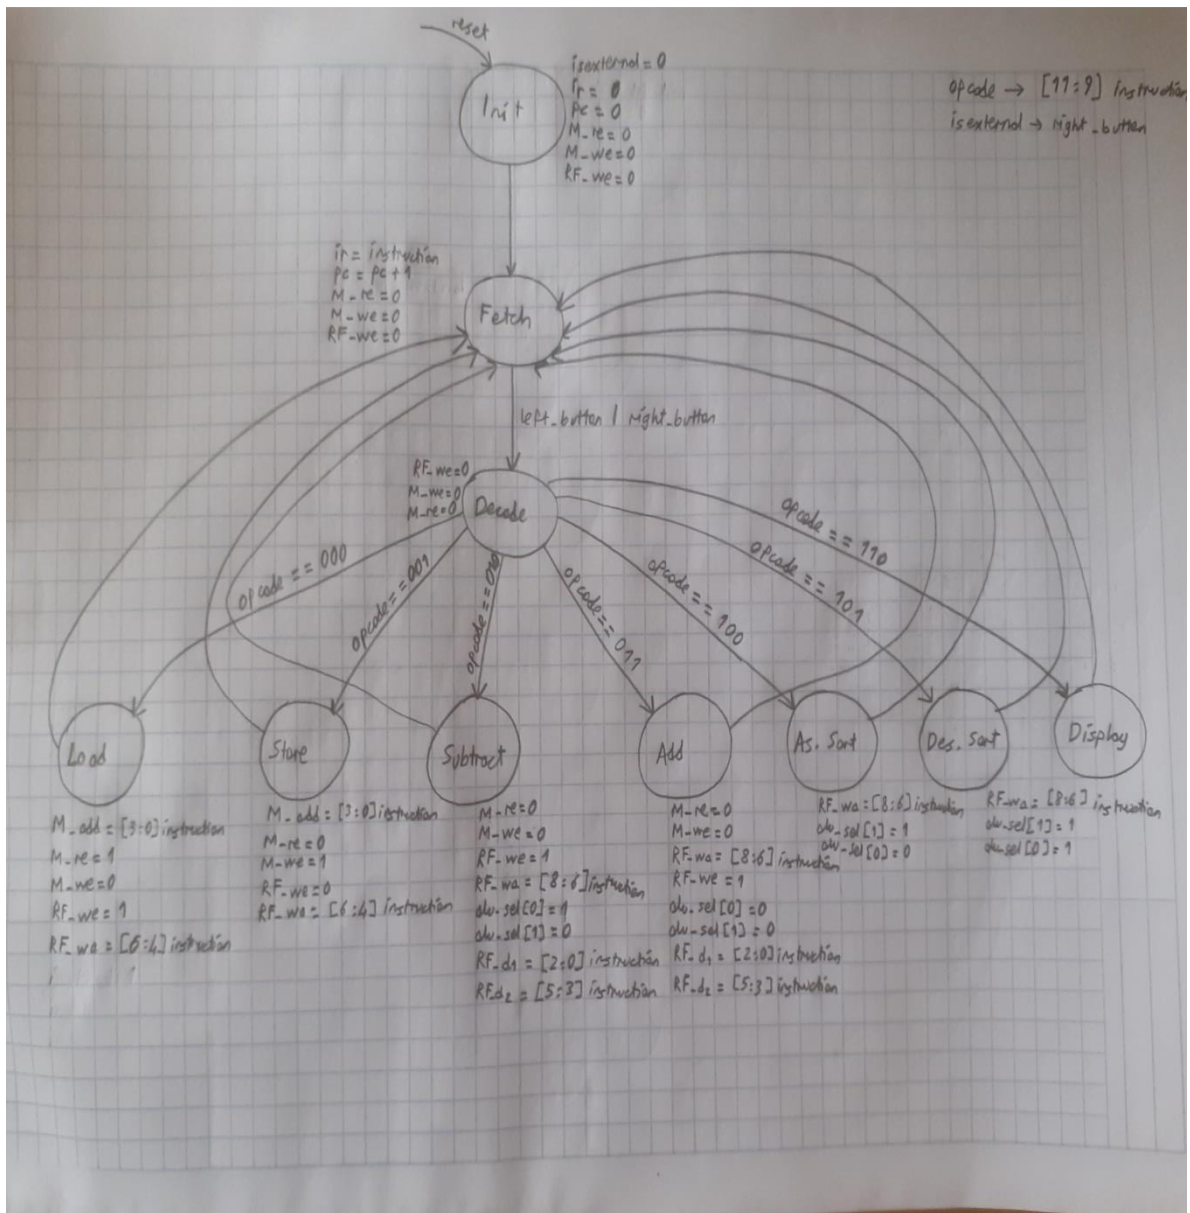 reset
Init
isexternal = 0
ir = 0
pc = 0
M_re=0
M_we=0
RF_we=0
opcode → [11:9] instruction
isexternal → right_button
ir = instruction
pc = pc+1
M_re=0
M_we=0
RF_we=0
Fetch
left_button | right_button
RF_we=0
M_we=0
M_re=0
Decode
opcode == 000
opcode==001
opcode==010
opcode==011
opcode==100
opcode == 101
opcode == 110
Load
M_add = [3:0] instruction
M_re = 1
M_we=0
RF_we=1
RF_wa=[6:4] instruction
Store
M_add=[3:0] instruction
M_re=0
M_we=1
RF_we=0
RF_wa=[6:4] instruction
Subtract
M_re=0
M_we=0
RF_we=1
RF_wa=[8:6] instruction
alu_sel[0]=1
alu_sel[1]=0
RF_d1=[2:0] instruction
RF_d2=[5:3] instruction
Add
M_re=0
M_we=0
RF_wa=[8:6] instruction
RF_we=1
alu_sel[0]=0
alu_sel[1]=0
RF_d1=[2:0] instruction
RF_d2=[5:3] instruction
As. Sort
RF_wa=[8:6] instruction
alu_sel[1]=1
alu_sel[0]=0
Des. Sort
RF_wa=[8:6] instruction
alu_sel[1]=1
alu_sel[0]=1
Display